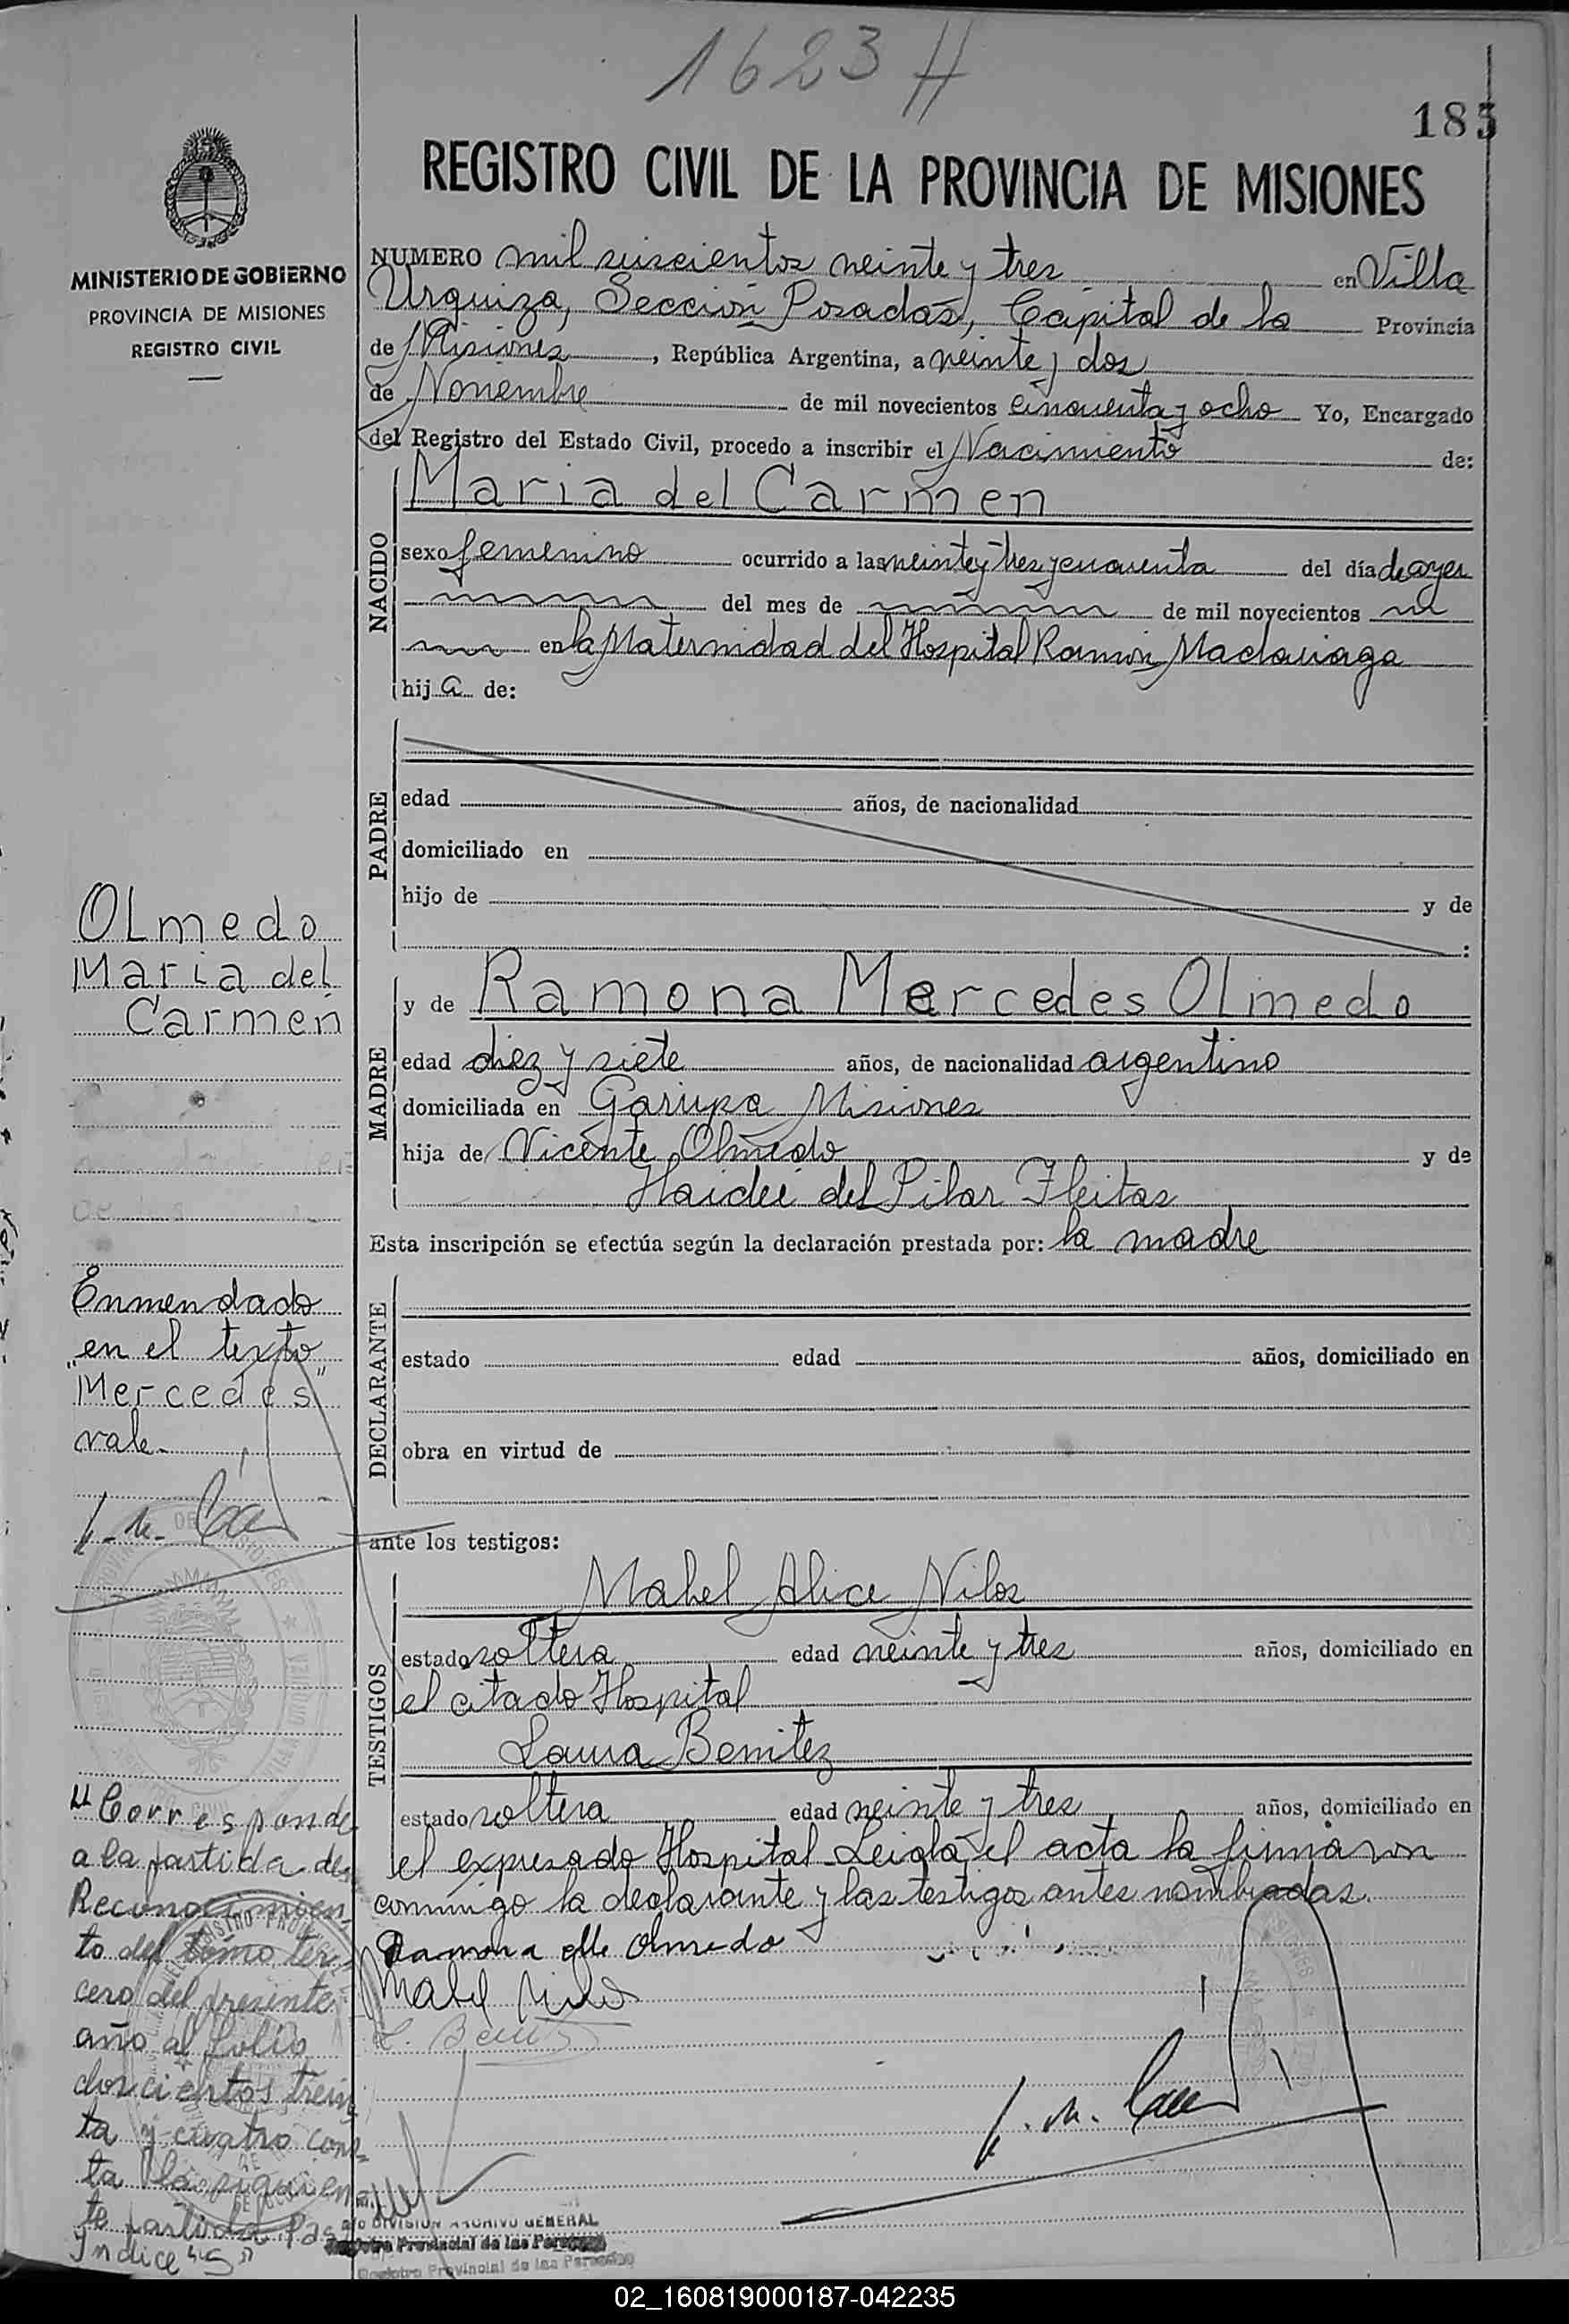 1623 H
185
REGISTRO CIVIL DE LA PROVINCIA DE MISIONES
MINISTERIO DE GOBIERNO
PROVINCIA DE MISIONES
REGISTRO CIVIL
NUMERO mil seiscientos veinte y tres en Villa
Urquiza, Sección Posadas, Capital de la Provincia
de Misiones, República Argentina, a veinte y dos
de Noviembre de mil novecientos cincuenta y ocho Yo, Encargado
del Registro del Estado Civil, procedo a inscribir el Nacimiento de:
NACIDO
Maria del Carmen
sexo femenino ocurrido a las veinte y tres y cuarenta del día de ayer
del mes de de mil novecientos
en la Maternidad del Hospital Ramón Madariaga
hija de:
PADRE
edad años, de nacionalidad
domiciliado en
hijo de y de
:
Olmedo
Maria del
Carmen
MADRE
y de Ramona Mercedes Olmedo
edad diez y siete años, de nacionalidad argentino
domiciliada en Garupa Misiones
hija de Vicente Olmedo y de
Haidée del Pilar Fleitas
Esta inscripción se efectúa según la declaración prestada por: la madre
Enmendado
en el texto
"Mercedes"
vale.
DECLARANTE
estado edad años, domiciliado en
obra en virtud de
ante los testigos:
TESTIGOS
Mabel Alice Nilos
estado soltera edad veinte y tres años, domiciliado en
el citado Hospital
Laura Benitez
estado soltera edad veinte y tres años, domiciliado en
el expresado Hospital Leída el acta la firmaron
conmigo la declarante y las testigos antes nombradas.
Ramona Me Olmedo
Mabel Nilos
L. Benitez
"Corresponde
a la partida de
Reconocimien-
to del tomo ter-
cero del presente
año al folio
doscientos trein
ta y cuatro cons-
ta la siguien
te partida Pas
Indice "S"
DIVISION ARCHIVO GENERAL
Registro Provincial de las Personas
Registro Provincial de las Personas
02_160819000187-042235